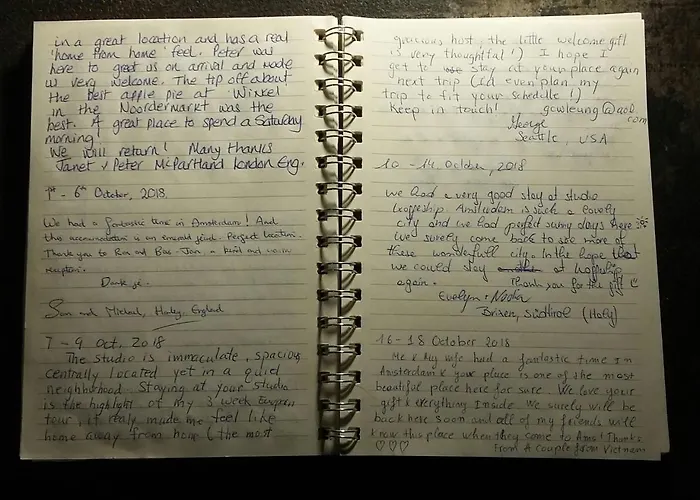 in a great location and has a real
'home from home' feel. Peter was
here to greet us on arrival and made
us very welcome. The tip off about
the best apple pie at 'Winkel'
in the Noordermarkt was the
best. A great place to spend a Saturday
morning!
We will return! Many thanks
Janet & Peter McPartland London Eng.
1st - 6th October, 2018.
We had a fantastic time in Amsterdam! And
this accommodation is an emerald find. Perfect location.
Thank you to Ron and Bas-Jan a kind and warm
reception.
Dank je.
Sam and Michael, Harley, England
7 - 9 Oct, 2018
The studio is immaculate, spacious,
centrally located yet in a quiet
neighborhood. Staying at your studio
is the highlight of my 3 week European
tour, it realy made me feel like
home away from home (the most
gracious host, the little welcome gift
is very thoughtful!) I hope I
get to stay at your place again
next trip (I'd even plan my
trip to fit your schedule!)
Keep in touch! gowleung@aol.com
George
Seattle, USA
10 - 14 October, 2018
We had a very good stay at studio
Wopship. Amsterdam is such a lovely
city and we had perfect sunny days here
We surely come back to see more of
these wonderfull city. In the hope that
we could stay at Wopship
again. Thank you for the gift
Evelyn + 
Brixen, Südtirol (Italy)
16 - 18 October 2018
Me & my wife had a fantastic time in
Amsterdam & your place is one of the most
beautiful place here for sure. We love your
gift & everything inside. We surely will be
back here soon and all of my friends will
know this place when they come to Ams! Thanks
♡♡♡ From A couple from Vietnam